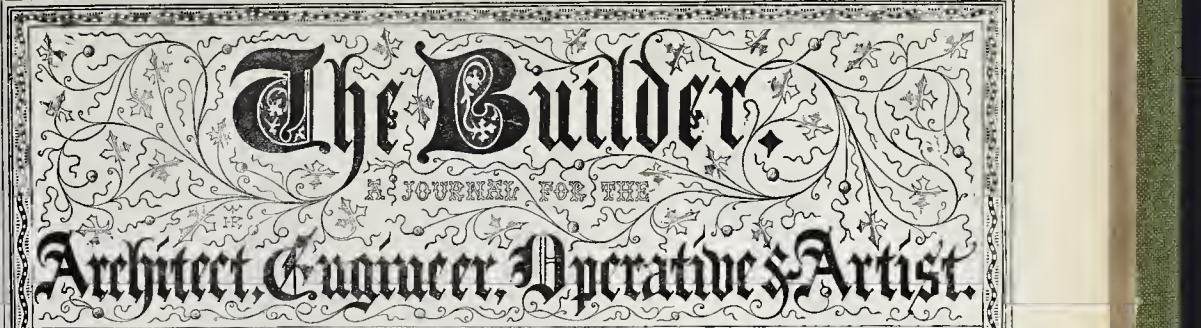 The Builder.
A JOURNAL FOR THE
Architect, Engineer, Operative & Artist.